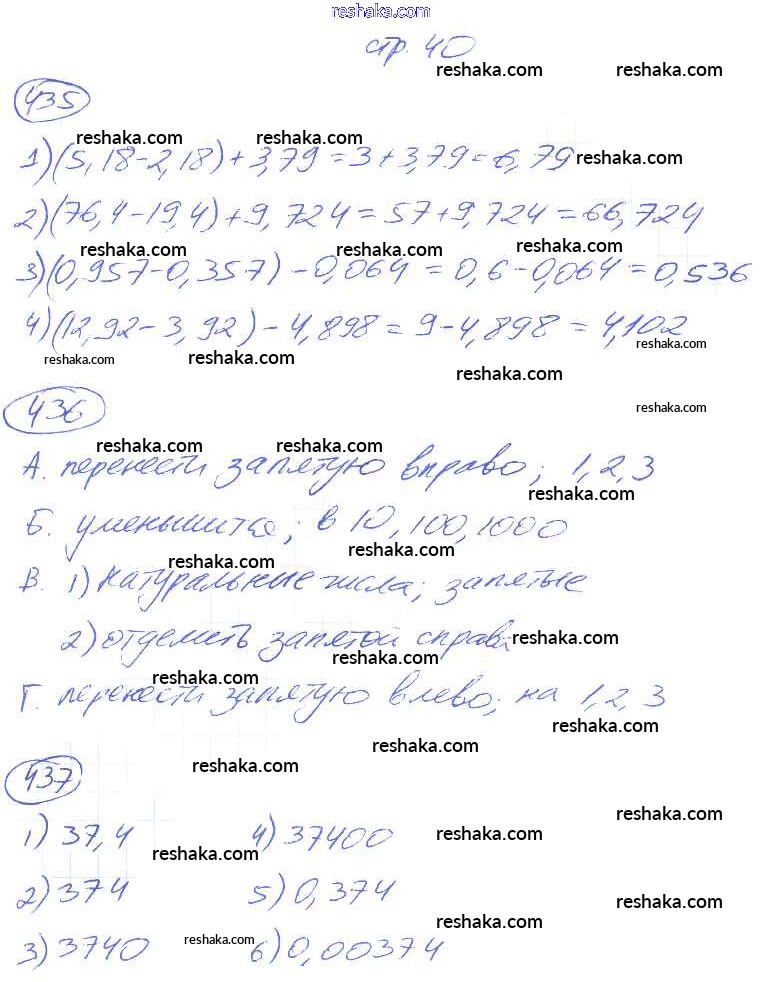 reshaka.com
стр. 40
reshaka.com reshaka.com
435
reshaka.com reshaka.com
1) (5,18-2,18)+3,79=3+3,79=6,79 reshaka.com
2) (76,4-19,4)+9,724=57+9,724=66,724
reshaka.com reshaka.com reshaka.com
3) (0,957-0,357)-0,064=0,6-0,064=0,536
4) (12,92-3,92)-4,898=9-4,898=4,102
reshaka.com reshaka.com reshaka.com
reshaka.com
436 reshaka.com
reshaka.com reshaka.com
А. перенести запятую вправо; 1,2,3
reshaka.com
Б. уменьшится; в 10, 100, 1000
reshaka.com reshaka.com
В. 1) натуральные числа; запятые
2) отделить запятой справа reshaka.com
reshaka.com reshaka.com
Г. перенести запятую влево; на 1,2,3
reshaka.com
reshaka.com reshaka.com
437
reshaka.com
1) 37,4 4) 37400 reshaka.com
reshaka.com
2) 374 5) 0,374 reshaka.com
reshaka.com
3) 3740 reshaka.com 6) 0,00374